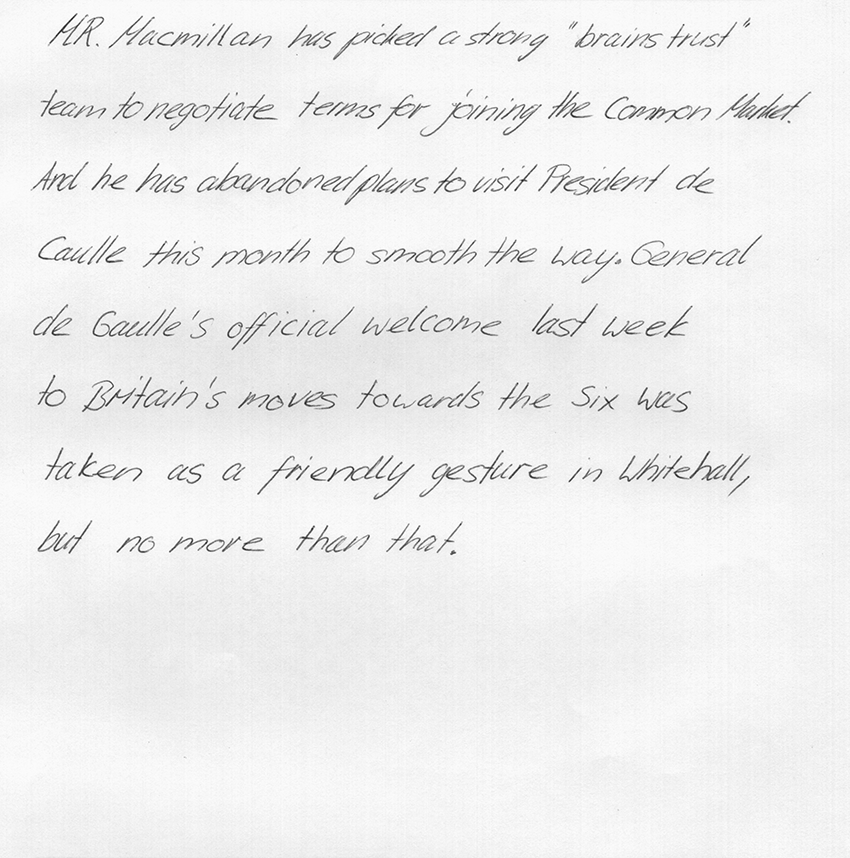 MR. Macmillan has picked a strong "brains trust"
team to negotiate terms for joining the Common Market.
And he has abandoned plans to visit President de
Gaulle this month to smooth the way. General
de Gaulle's official welcome last week
to Britain's moves towards the Six was
taken as a friendly gesture in Whitehall,
but no more than that.